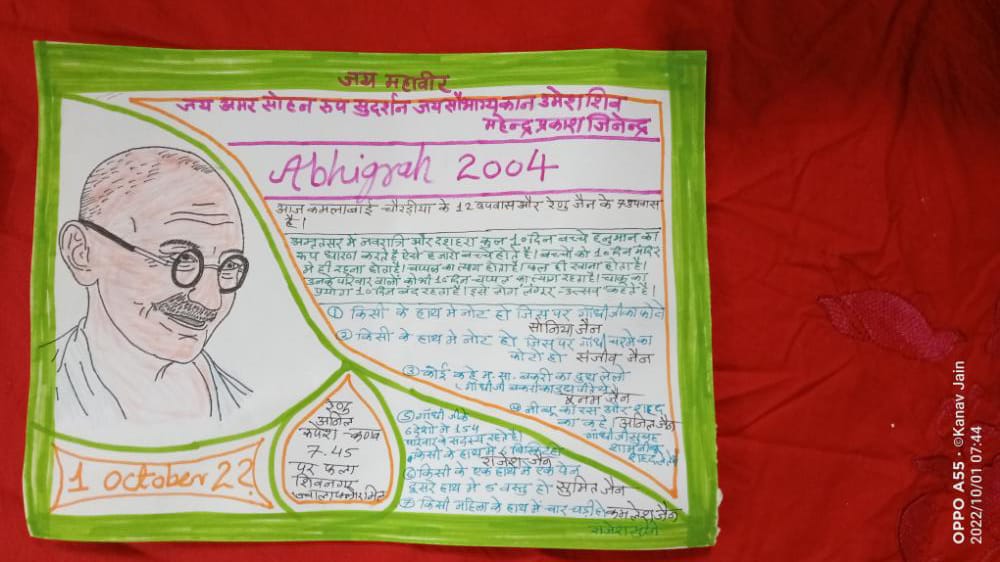 जय महावीर
जय अमर सोहन रुप सुदर्शन जय सौभाग्य कान उमेश शिव
महेन्द्र प्रकाश जिनेन्द्र
Abhigrah 2004
आज कमलाबाई चौरड़ीया के 12 उपवास और रेणु जैन के उपवास
है।
अमृतसर में नवरात्रि और दशहरा कुल 10 दिन बच्चे हनुमान का
रूप धारण करते है ऐसे हजारो बच्चे होते है। बच्चों को 10 दिन मंदिर
में ही रहना होगा। चप्पल का त्याग होता। फल ही खाना होता है।
उनके परिवार वालों को भी 10 दिन चप्पल का त्याग रहता। चाकू का
प्रयोग 10 दिन बंद रहता है। इसे लोग लंगूर उत्सव कहते है।
① किसी के हाथ मे नोट हो जिस पर गाँधीजी का फोटो
सोनिया जैन
② किसी के हाथ मे नोट हो जिस पर गाँधी चश्मे का
फोटो हो संजीव जैन
③ कोई कहे म. सा. बकरी का दुध ले लो
गाँधीजी बकरी का दुध पीते थे
जैन
④ नीम्बू का रस और शहद
का कहे अनिल जैन
गाँधीजी सुबह
शाम नीम्बू
शहद लेते थे
⑤ गाँधी जी के
6 देशो मे 154
परिवार के सदस्य रहते है
किसी के हाथ में 6 बिस्किट हो
राजेश जैन
⑥ किसी के एक हाथ मे एक पेन
दुसरे हाथ मे 5 वस्तु हो सुमित जैन
⑦ किसी महिला के हाथ में चार घड़ी हो कमलेश जैन
रेणु
अनिल
रुपेश - कणव
7.45
पर फला
शिवनगर
1 october 22
OPPO A55 · ©Kanav Jain
2022/10/01 07:44